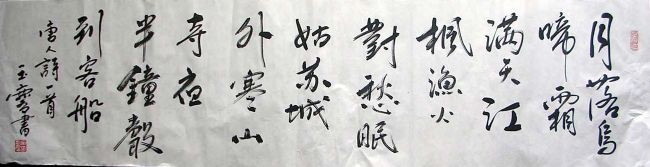 月落烏
啼霜
滿天江
楓漁火
對愁眠
姑苏城
外寒山
寺夜
半鐘聲
到客船
唐人詩一首
玉書